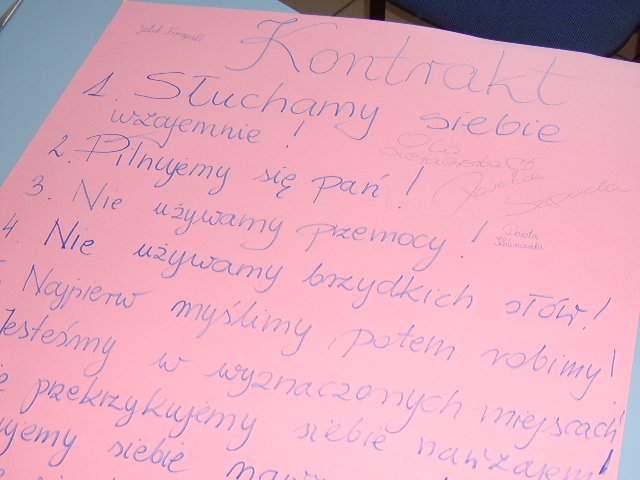 Kontrakt
1. Słuchamy siebie
wzajemnie!
2. Pilnujemy się pań!
3. Nie używamy przemocy!
4. Nie używamy brzydkich słów!
Najpierw myślimy, potem robimy!
Jesteśmy w wyznaczonych miejscach!
przekrzykujemy siebie nawzajem!
siebie